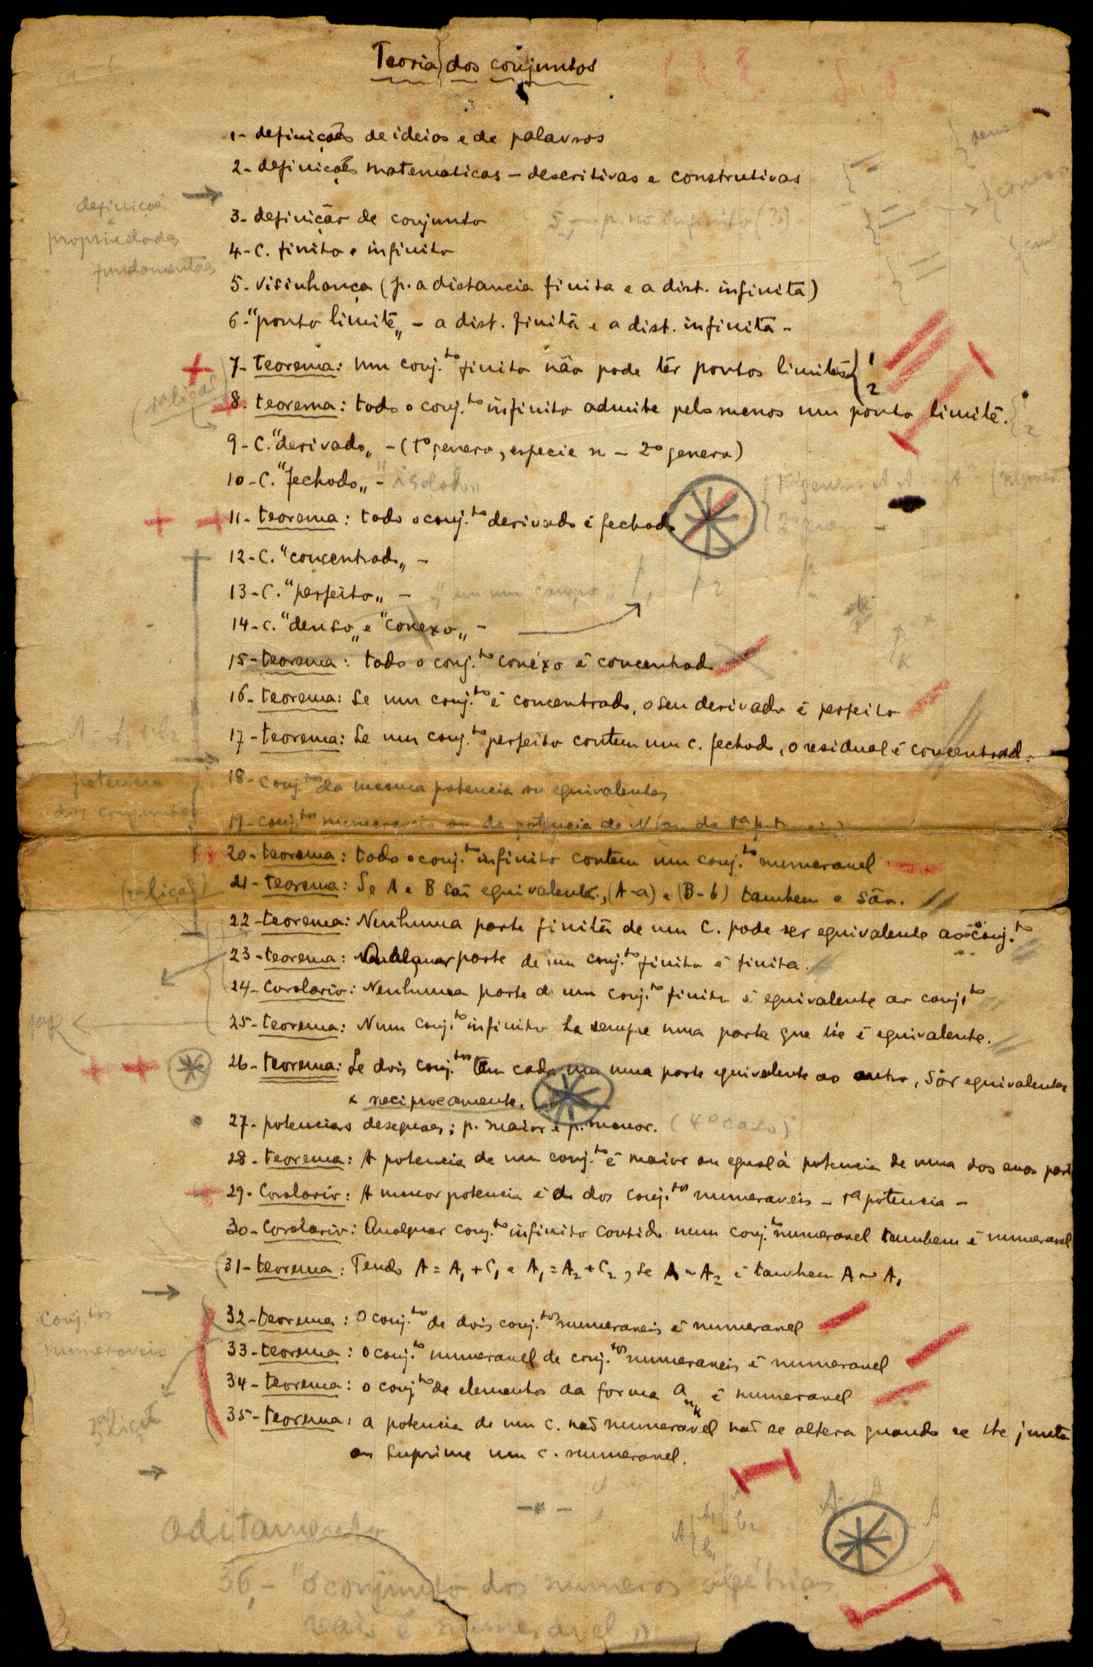 Teoria dos conjuntos
1- definições de ideias e de palavras
2- definições matematicas – descritivas e construtivas
definições
propriedades
fundamentaes
3- definição de conjunto
4- C. finito e infinito
5- Visinhança (p. a distancia finita e a dist. infinita)
6- "ponto limite„ – a dist. finita e a dist. infinita –
7- teorema: Um conj.to finito não pode ter pontos limites { 1 2
8- teorema: todo o conj.to infinito admite pelo menos um ponto limite.
9- C. "derivado„ – (1º genero, especie n – 2º genero)
10- C. "fechado„ – "isolado„
11- teorema: todo o conj.to derivado é fechado
12- C. "concentrado„ –
13- C. "perfeito„ –
14- C. "denso„ e "conexo„ –
15- teorema: todo o conj.to conéxo é concentrado
16- teorema: Se um conj.to é concentrado, o seu derivado é perfeito
17- teorema: Se um conj.to perfeito contem um c. fechado, o residual é concentrado.
potencia
dos conjuntos
18- Conj.tos da mesma potencia ou equivalentes
19- Conj.tos numeraveis ou da potencia de N (ou da 1ª potencia)
20- teorema: todo o conj.to infinito contem um conj.to numeravel
(2ª lição)
21- teorema: Se A e B são equivalentes, (A-a) e (B-b) tambem o são.
22- teorema: Nenhuma parte finita de um C. pode ser equivalente ao conj.to
23- teorema: Qualquer parte de um conj.to finito é finita.
24- Corolario: Nenhuma parte de um conj.to finito é equivalente ao conj.to
25- teorema: Num conj.to infinito ha sempre uma parte que lhe é equivalente.
26- teorema: Se dois conj.tos têm cada um uma parte equivalente ao outro, são equivalentes
e reciprocamente.
27- potencias desiguaes; p. maior e p. menor. (4º caso)
28- teorema: A potencia de um conj.to é maior ou egual á potencia de uma das suas part
29- Corolario: A menor potencia é a dos conj.tos numeraveis – 1ª potencia –
30- Corolario: Qualquer conj.to infinito contido num conj.to numeravel tambem é numeravel
31- teorema: Tendo A = A1 + C1 e A1 = A2 + C2, se A ~ A2 é tambem A ~ A1
Conj.tos
numeraveis
32- teorema: O conj.to de dois conj.tos numeraveis é numeravel
33- teorema: o conj.to numeravel de conj.tos numeraveis é numeravel
34- teorema: o conj.to de elementos da forma a n,k é numeravel
35- teorema: a potencia de um c. não numeravel não se altera quando se lhe junta
ou suprime um c. numeravel.
aditamento
36- "o conjunto dos numeros algébricos
reais é numeravel„